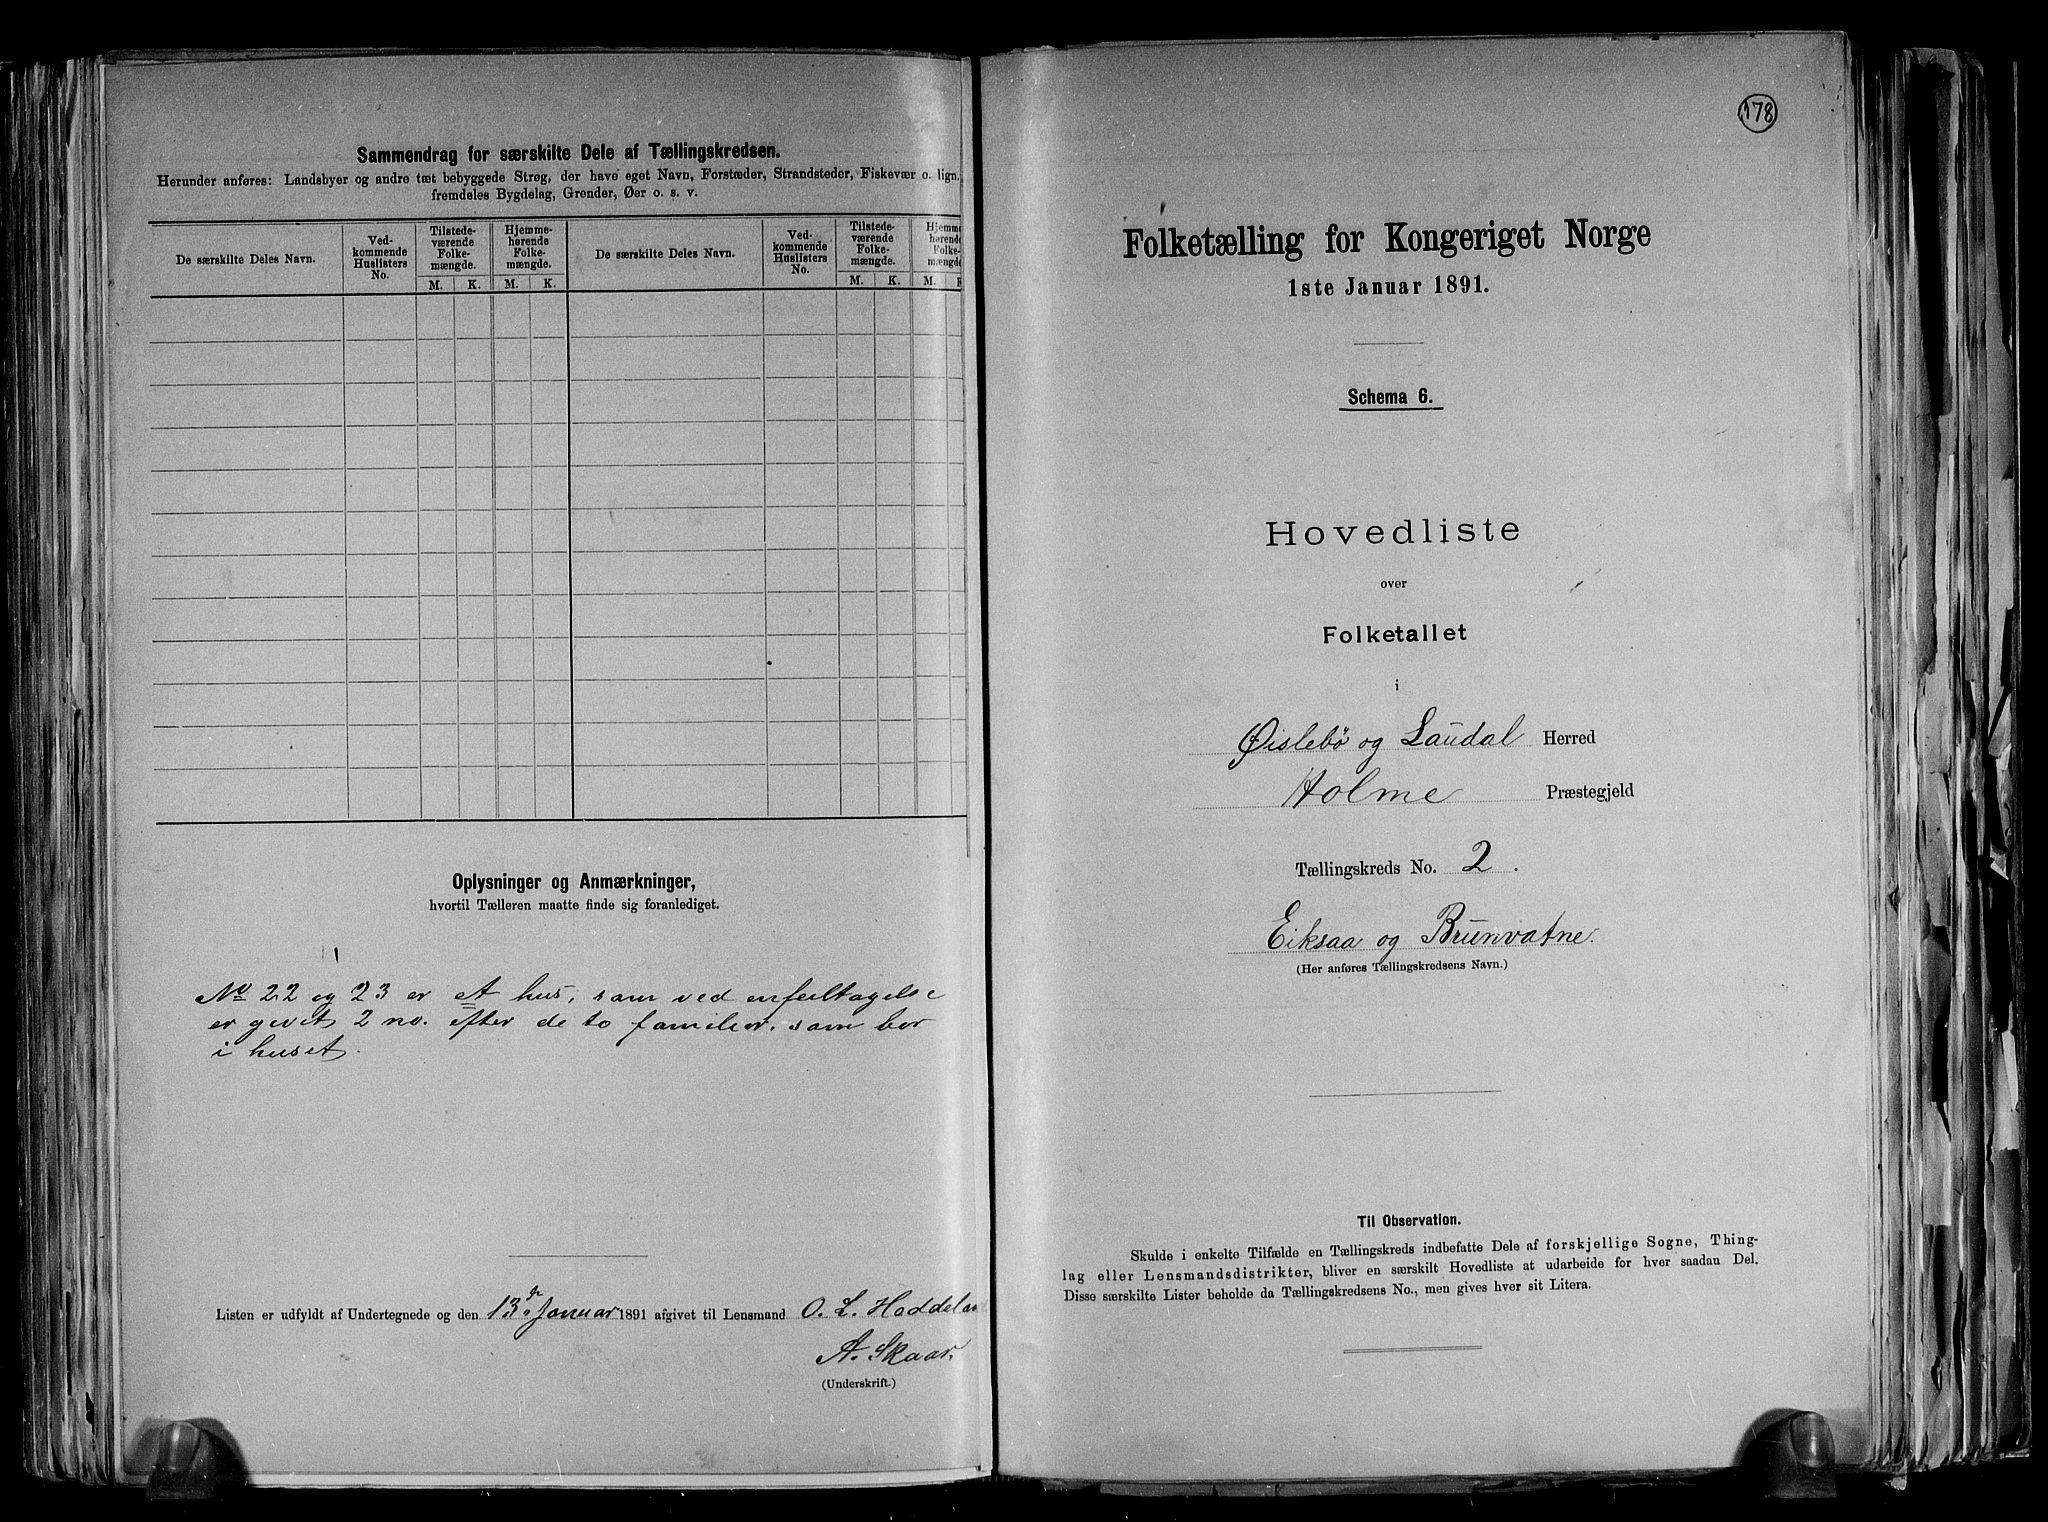 Sammendrag for særskilte Dele af Tællingskredsen.
Herunder anføres: Landsbyer og andre tæt bebyggede Strøg, der have eget Navn, Forstæder, Strandsteder, Fiskevær o. lign.
fremdeles Bygdelag, Grender, Øer o. s. v.
De særskilte Deles Navn.
Ved-
kommende
Huslisters
No.
Tilstede-
værende
Folke-
mængde.
Hjemme-
hørende
Folke-
mængde.
De særskilte Deles Navn.
Ved-
kommende
Huslisters
No.
Tilstede-
værende
Folke-
mængde.
Hjemme
hørende
Folke-
mængde
M. K. M. K. M. K. M.
Oplysninger og Anmærkninger,
hvortil Tælleren maatte finde sig foranlediget.
No 22 og 23 er et hus, som ved en feiltagelse
er givet 2 no. efter de to familier, som bor
i huset.
Listen er udfyldt af Undertegnede og den 13de Januar 1891 afgivet til Lensmand O. L. Haddelan
A. Skaar.
(Underskrift.)
178
Folketælling for Kongeriget Norge
1ste Januar 1891.
Schema 6.
Hovedliste
over
Folketallet
i
Øislebø og Laudal Herred
Holme Præstegjeld
Tællingskreds No. 2.
Eiksaa og Brunvatne.
(Her anføres Tællingskredsens Navn.)
Til Observation.
Skulde i enkelte Tilfælde en Tællingskreds indbefatte Dele af forskjellige Sogne, Thing-
lag eller Lensmandsdistrikter, bliver en særskilt Hovedliste at udarbeide for hver saadan Del.
Disse særskilte Lister beholde da Tællingskredsens No., men gives hver sit Litera.